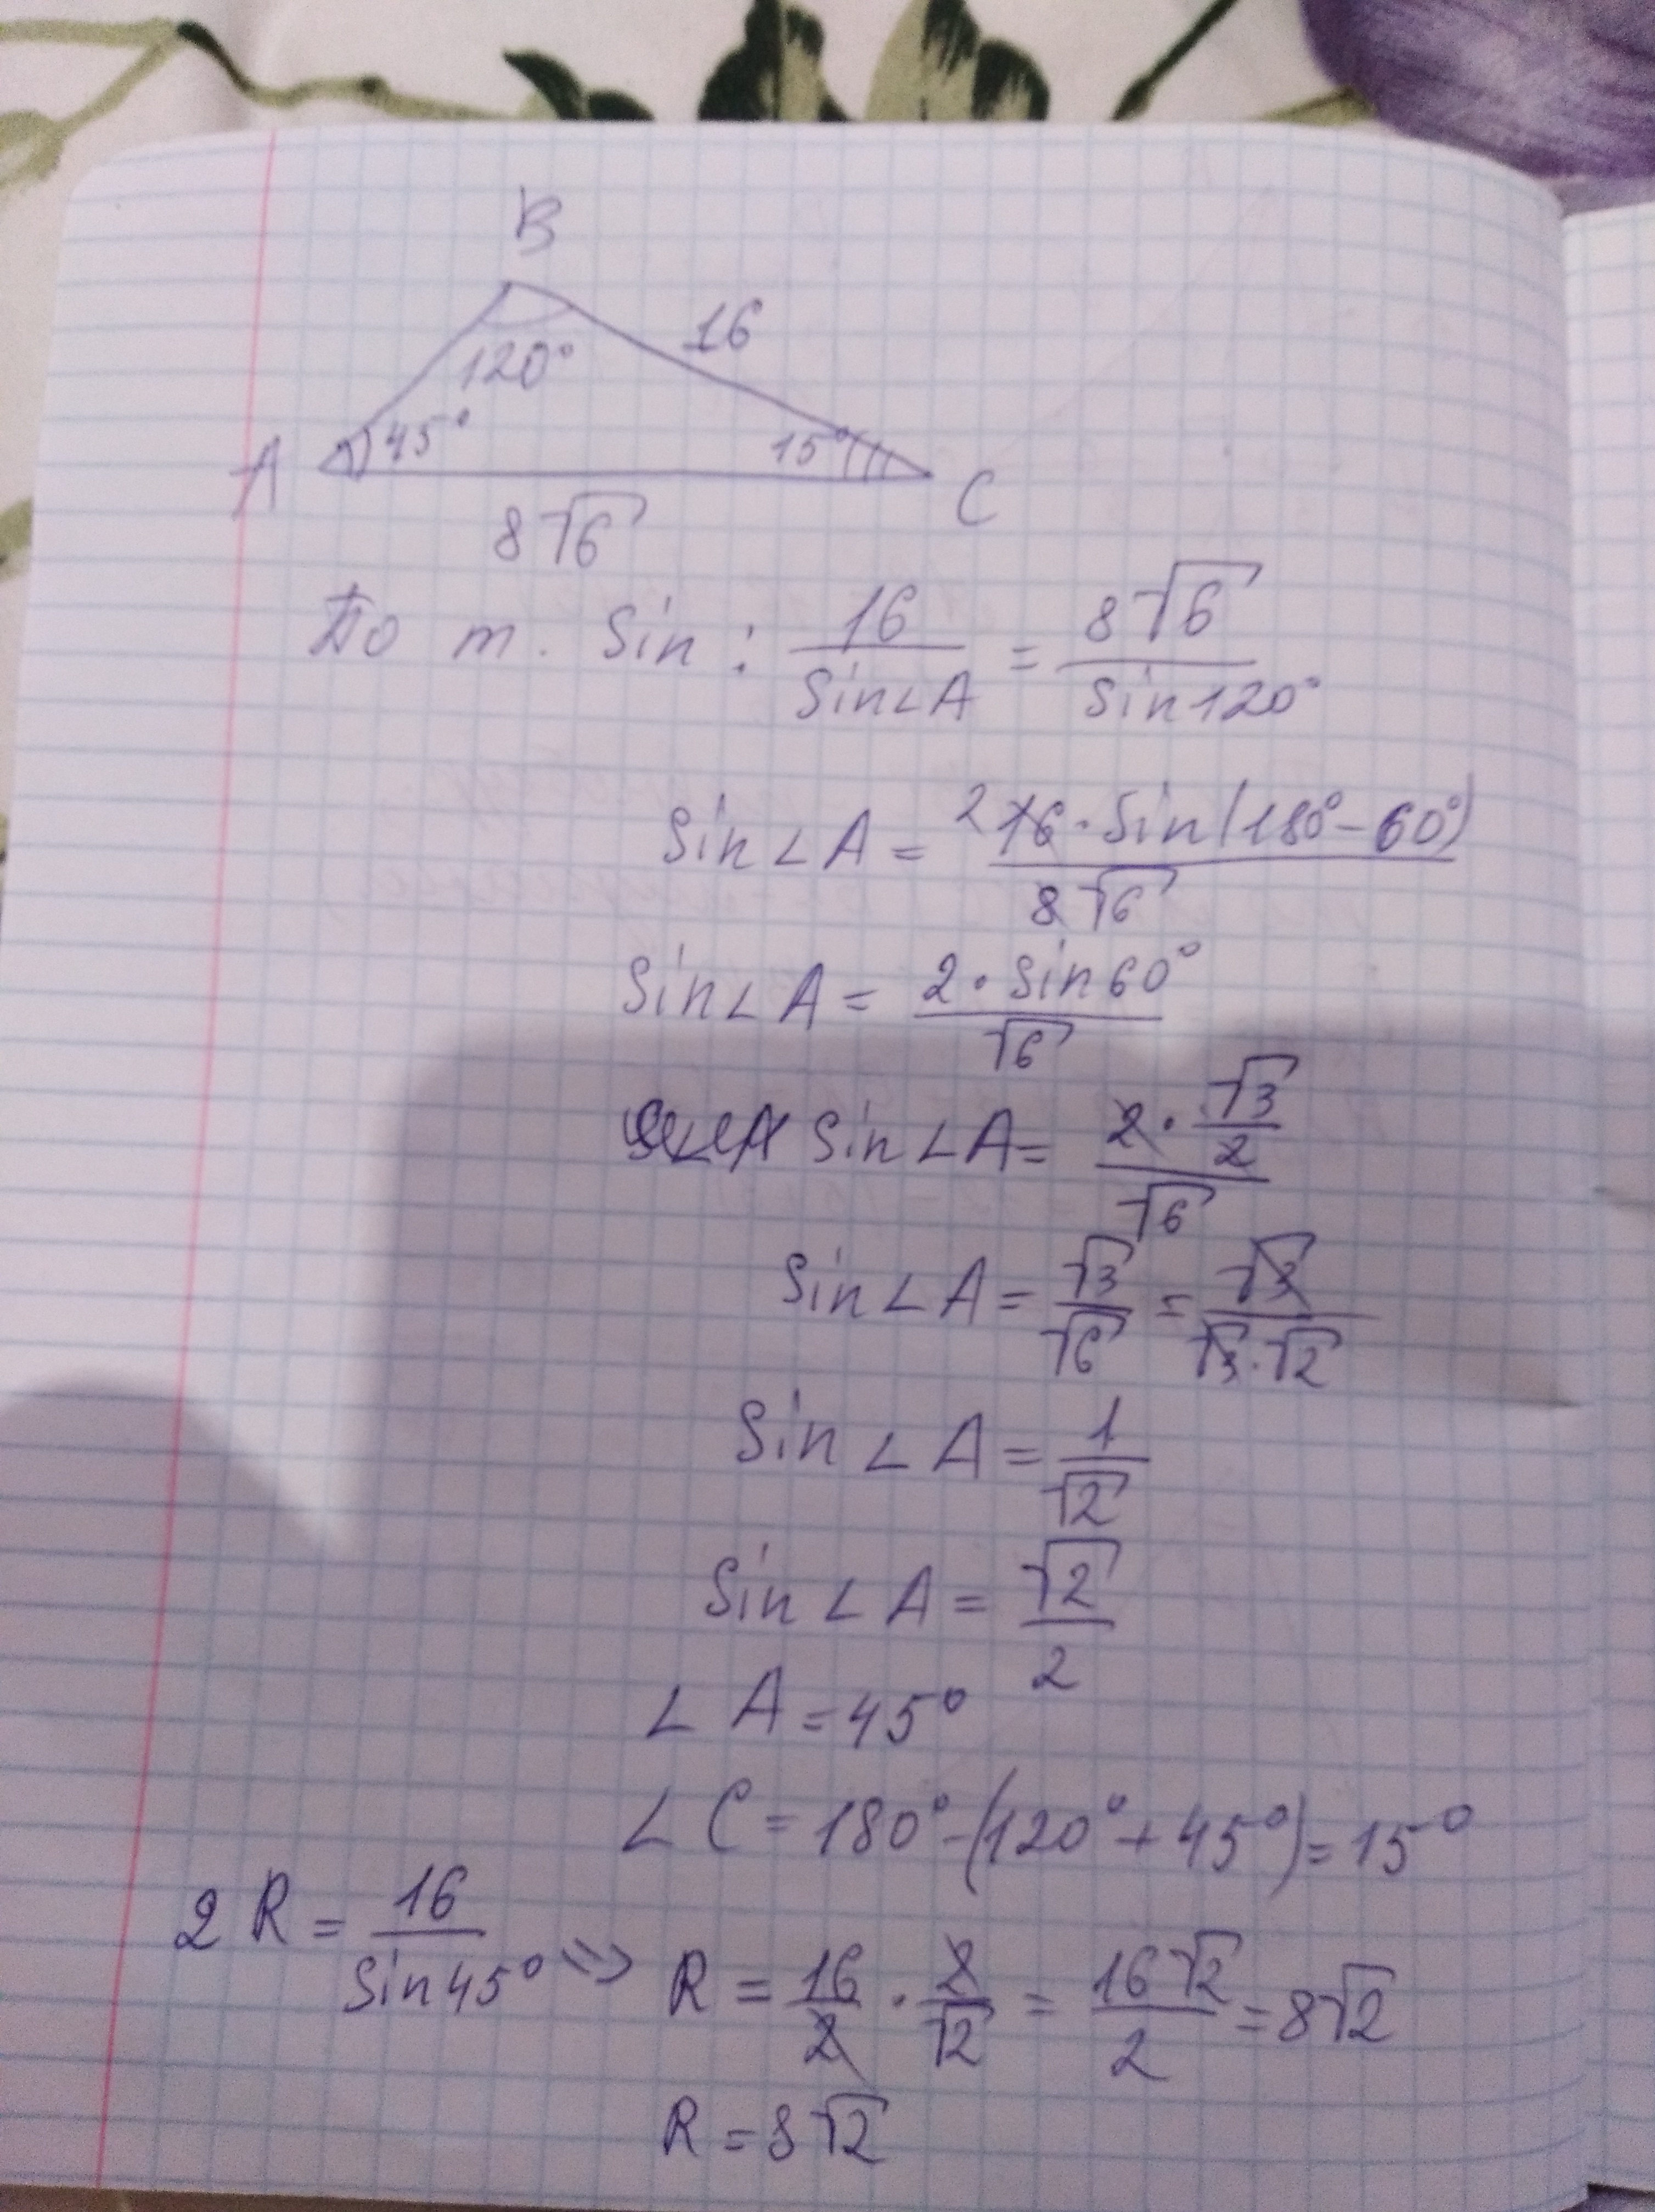 B
16
120°
A 45° 15° C
8√6
По т. Sin: 16/Sin∠A = 8√6/Sin120°
Sin∠A = 2 16·Sin(180°-60°)/8√6
Sin∠A = 2·Sin60°/√6
Sin∠A = 2·√3/2/√6
Sin∠A = √3/√6 = √3/√3·√2
Sin∠A = 1/√2
Sin∠A = √2/2
∠A = 45°
∠C = 180°-(120°+45°) = 15°
2R = 16/Sin45° => R = 16/2 · 2/√2 = 16√2/2 = 8√2
R = 8√2